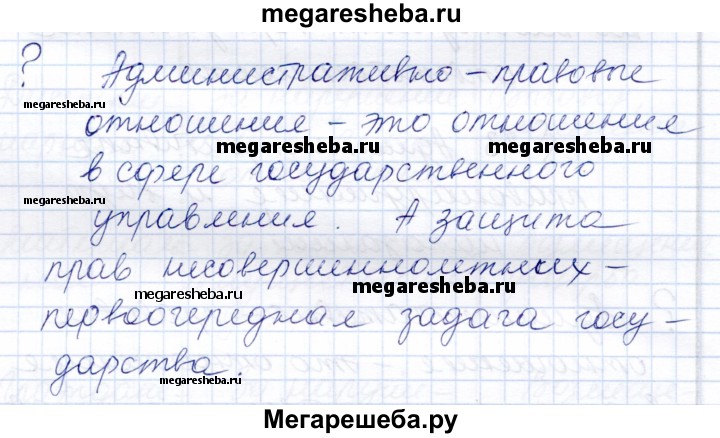 megaresheba.ru
? Административно - правовые
megaresheba.ru
отношения - это отношения
megaresheba.ru megaresheba.ru
в сфере государственного
megaresheba.ru
управления. А защита
прав несовершеннолетних -
megaresheba.ru megaresheba.ru
первоочередная задача госу -
дарства.
megaresheba.ru
Мегарешеба.ру